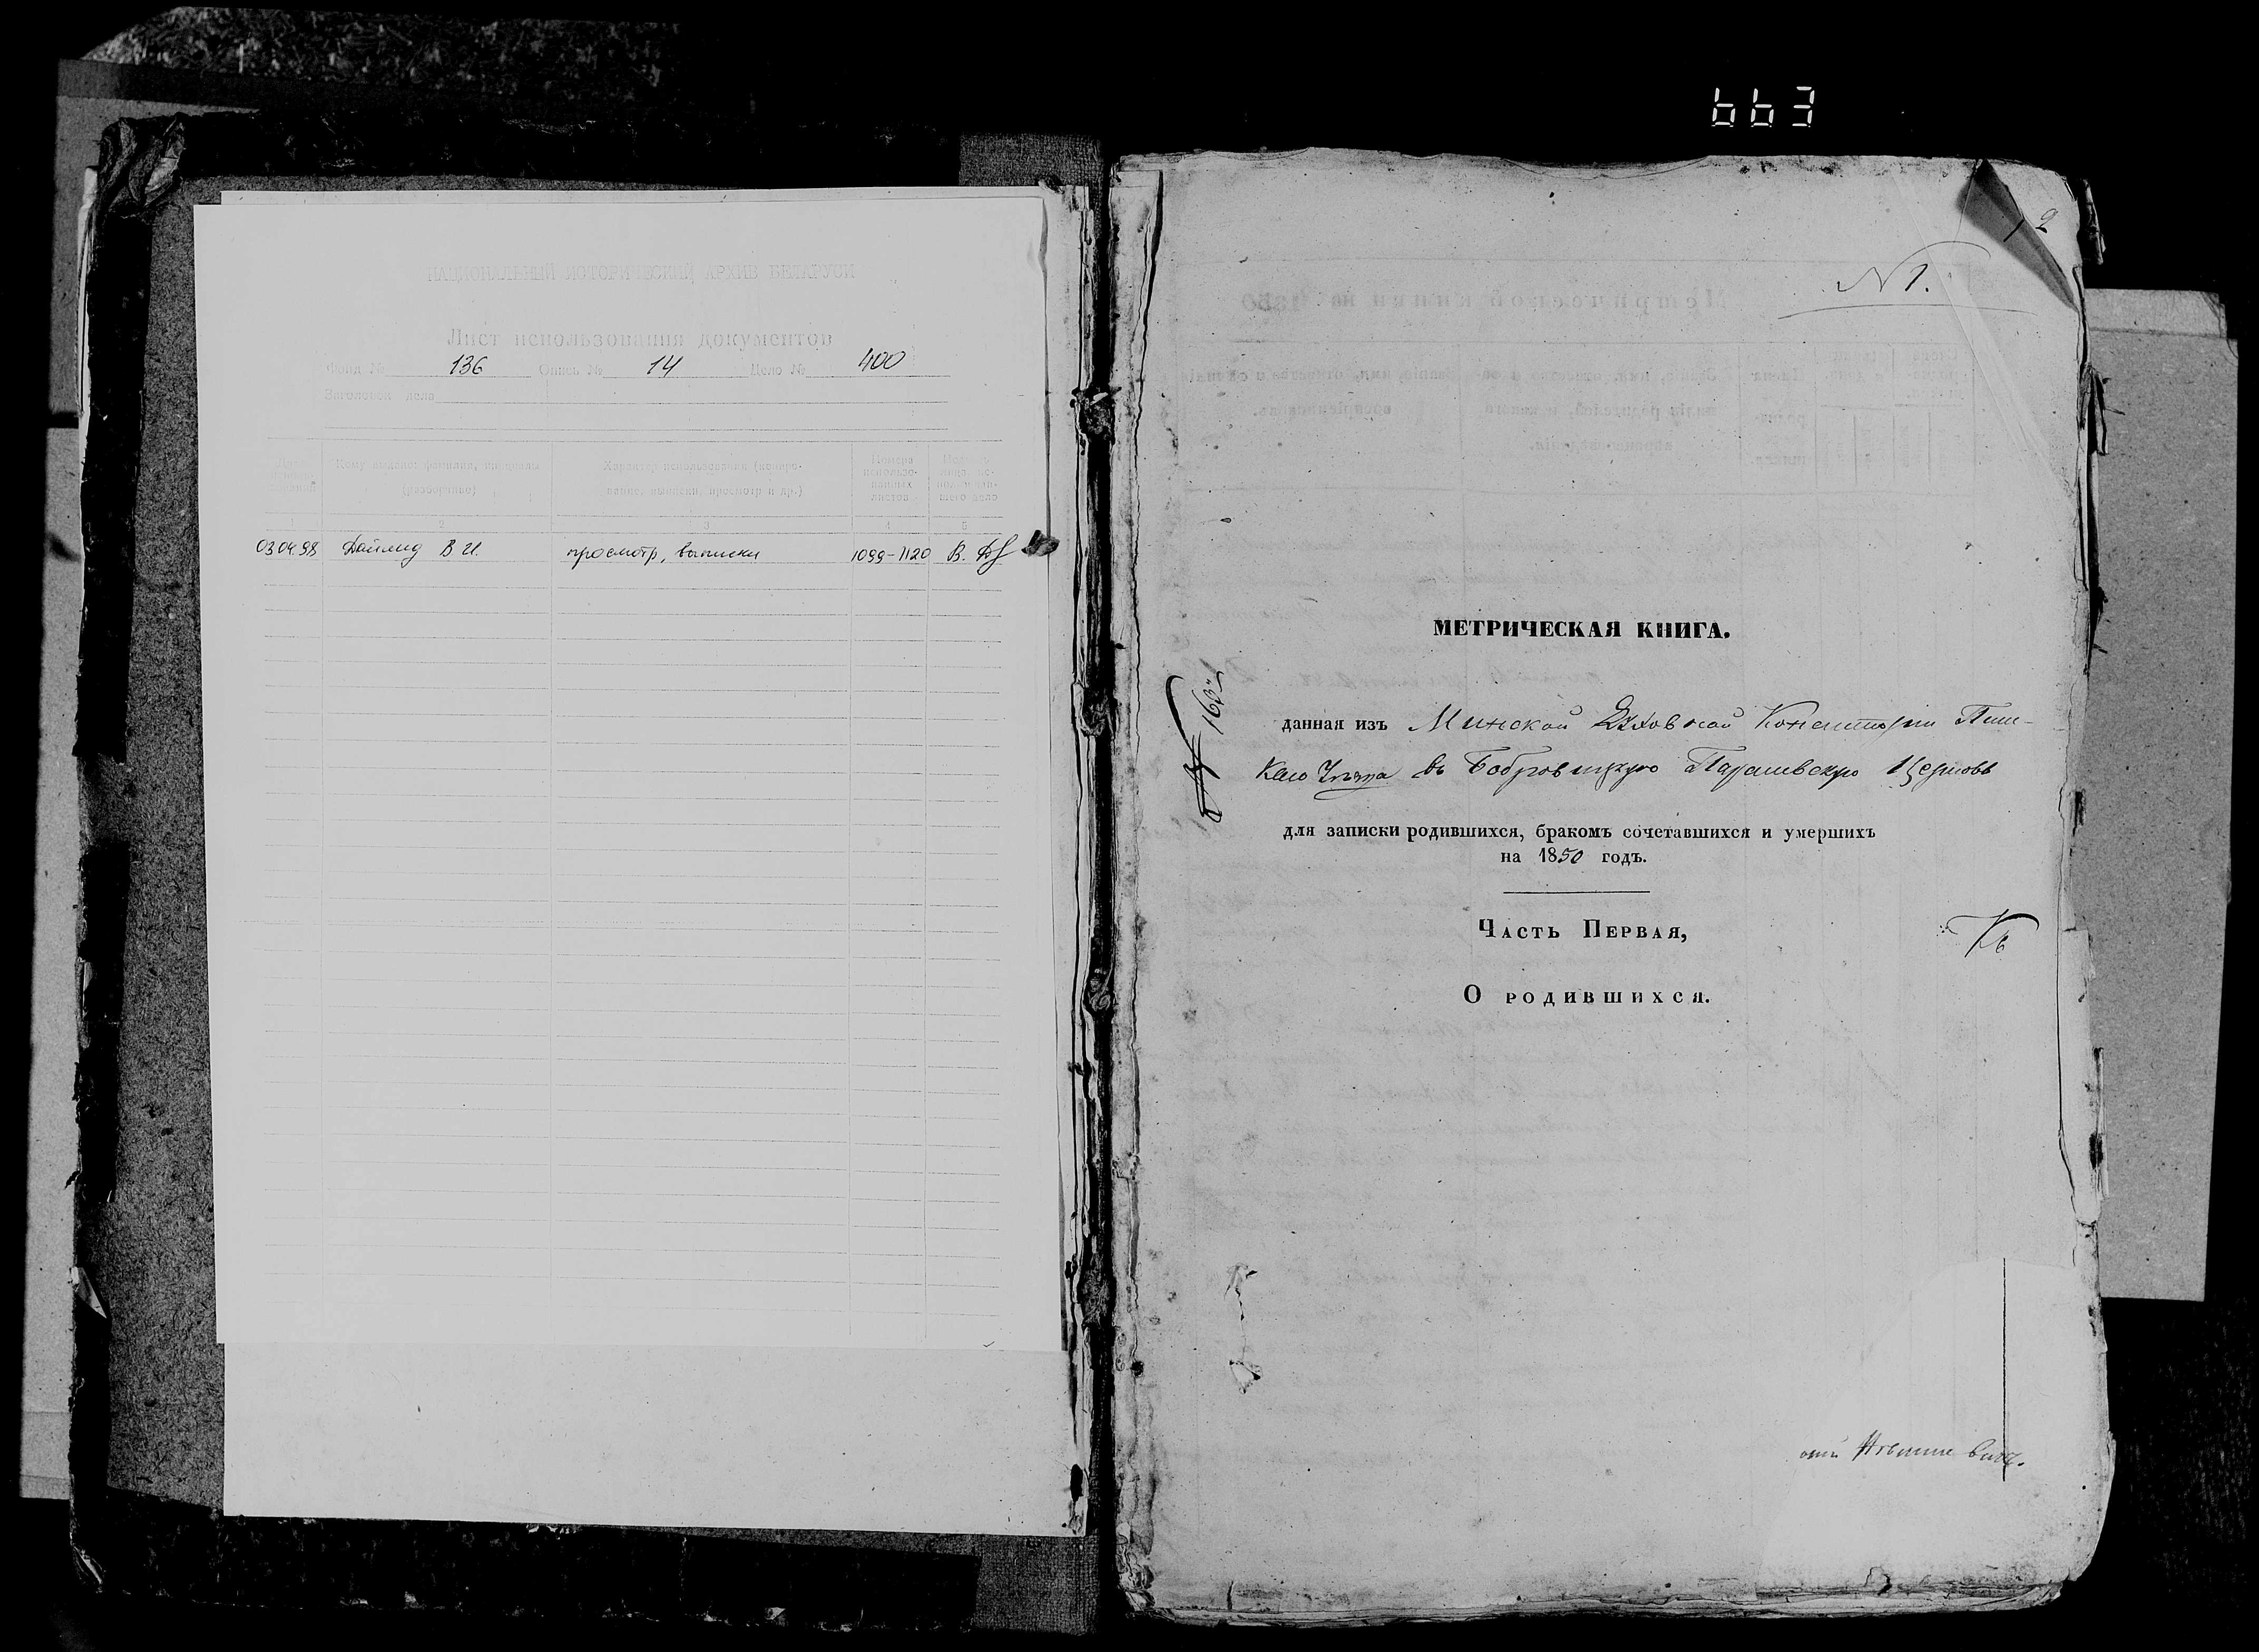 663
НАЦИОНАЛЬНЫЙ ИСТОРИЧЕСКИЙ АРХИВ БЕЛАРУСИ
Лист использования документов
Фонд № 136 Опись № 14 Дело № 400
Заголовок дела
Кому выдано: фамилия, инициалы (разборчиво)
Характер использования (копирование, выписки, просмотр и др.)
Номера использованных листов
1 2 3 4 5
03.04.98 Дайлид В И. просмотр, выписки 1099-1120 В.
2
N 1.
МЕТРИЧЕСКАЯ КНИГА.
данная изъ Минской Духовной Консисторіи Пин-
скаго Уѣзда въ Бобровицкую Церковь
для записки родившихся, бракомъ сочетавшихся и умершихъ
на 1850 годъ.
Часть Первая,
О родившихся.